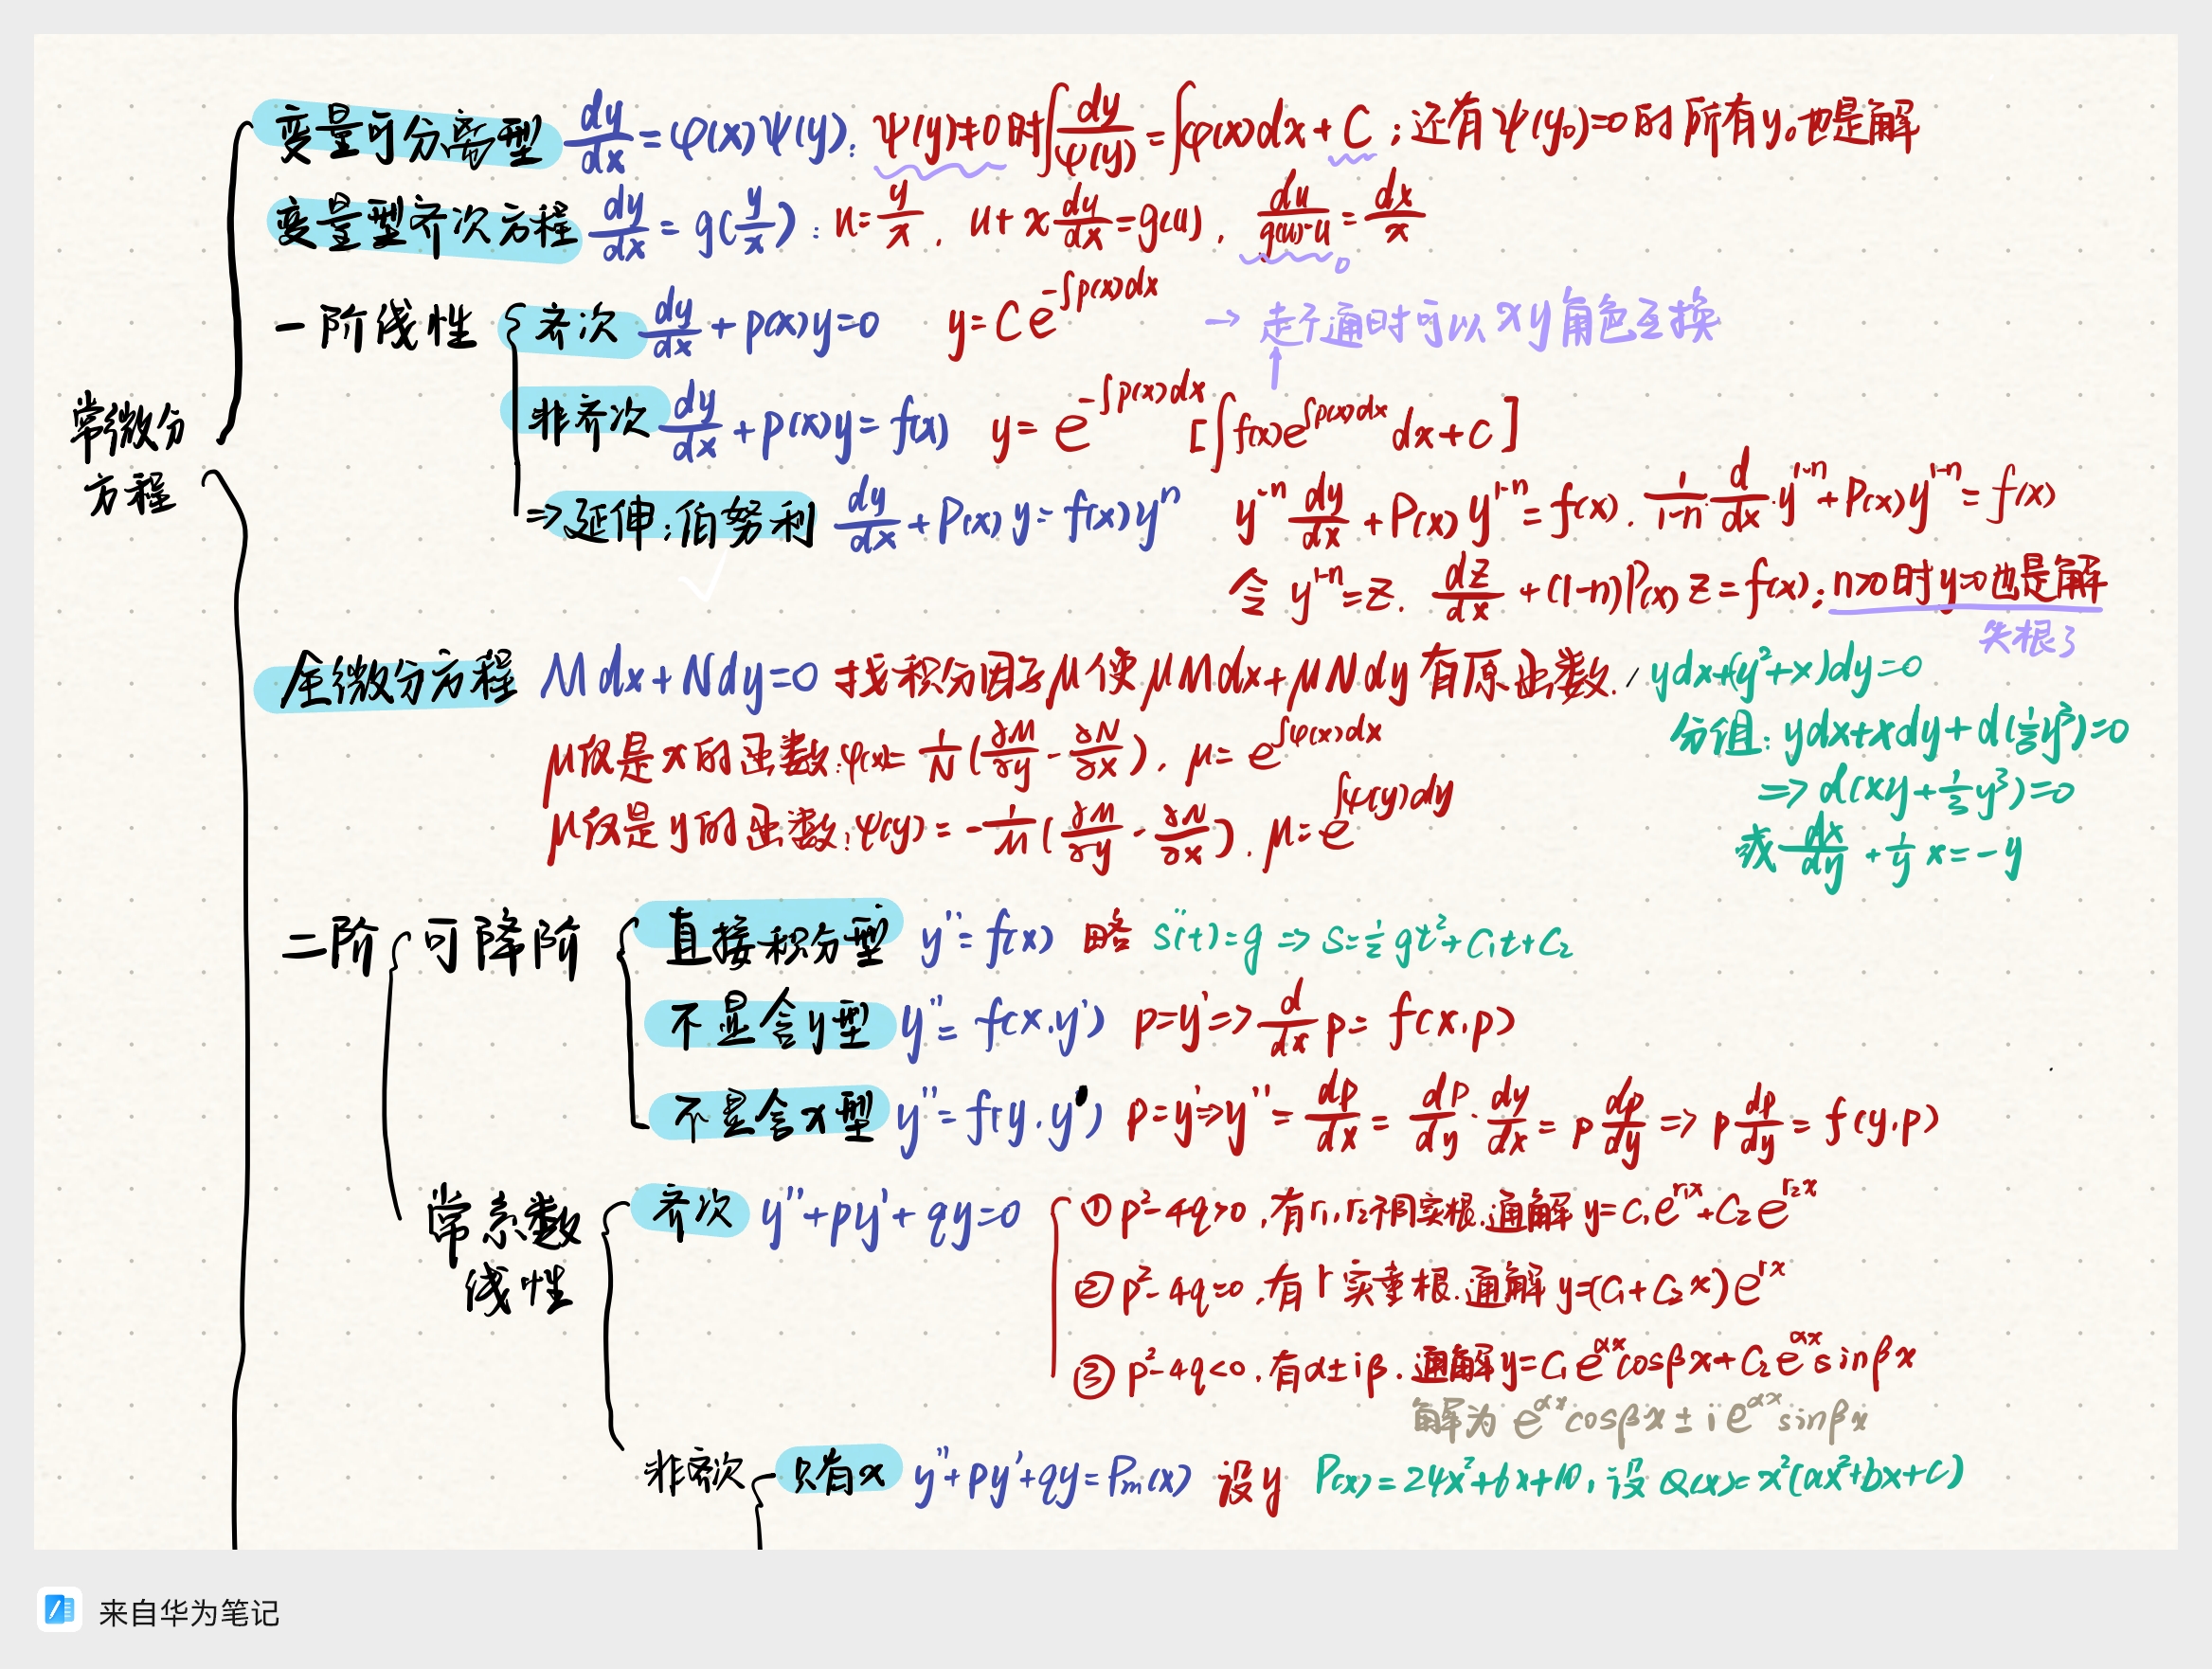 变量可分离型 dy/dx=φ(x)ψ(y): ψ(y)≠0时∫dy/φ(y)=∫φ(x)dx+C;还有ψ(y₀)=0的所有y₀也是解
变量型齐次方程 dy/dx=g(y/x): u=y/x, u+x dy/dx=g(u), du/(g(u)-u)=dx/x
0
一阶线性 齐次 dy/dx+p(x)y=0 y=Ce^(-∫p(x)dx) →走不通时可以xy角色互换
非齐次 dy/dx+p(x)y=f(x) y=e^(-∫p(x)dx)[∫f(x)e^(∫p(x)dx)dx+C]
常微分
方程
⇒延伸:伯努利 dy/dx+P(x)y=f(x)yⁿ y⁻ⁿ dy/dx+P(x)y¹⁻ⁿ=f(x). 1/(1-n)·d/dx·y¹⁻ⁿ+P(x)y¹⁻ⁿ=f(x)
令y¹⁻ⁿ=z. dz/dx+(1-n)P(x)z=f(x);n>0时y=0也是解
失根了
全微分方程 Mdx+Ndy=0 找积分因子μ使μMdx+μNdy有原函数. ydx+(y²+x)dy=0
分组:ydx+xdy+d(⅓y³)=0
μ仅是x的函数:φ(x)=1/N(∂M/∂y-∂N/∂x), μ=e^(∫φ(x)dx)
⇒d(xy+⅓y³)=0
μ仅是y的函数:ψ(y)=-1/M(∂M/∂y-∂N/∂x). μ=e^(∫ψ(y)dy)
或dx/dy+1/y x=-y
二阶 可降阶 直接积分型 y''=f(x) 略 s̈(t)=g⇒s=½gt²+C₁t+C₂
不显含y型 y''=f(x,y') p=y'⇒d/dx p=f(x,p)
不显含x型 y''=f(y,y') p=y'⇒y''=dp/dx=dp/dy·dy/dx=p dp/dy⇒p dp/dy=f(y,p)
常系数
线性
齐次 y''+py'+qy=0 ①p²-4q>0,有r₁,r₂不同实根.通解y=C₁e^(r₁x)+C₂e^(r₂x)
②p²-4q=0,有r实重根.通解y=(C₁+C₂x)e^(rx)
③p²-4q<0,有α±iβ.通解y=C₁e^(αx)cosβx+C₂e^(αx)sinβx
解为e^(αx)cosβx±ie^(αx)sinβx
非齐次 只有x y''+py'+qy=Pm(x) 设y P(x)=24x²+6x+10,设Q(x)=x²(ax²+bx+c)
来自华为笔记